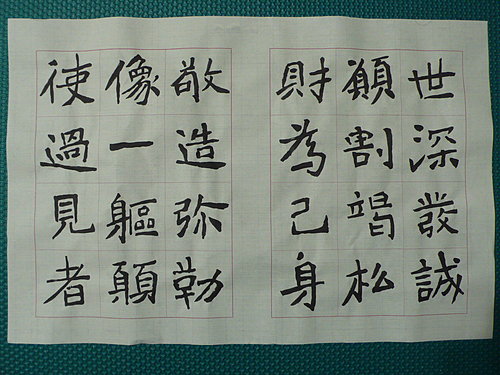 世深發誠
願割竭松
財為己身
敬造弥勒
像一軀願
使過見者